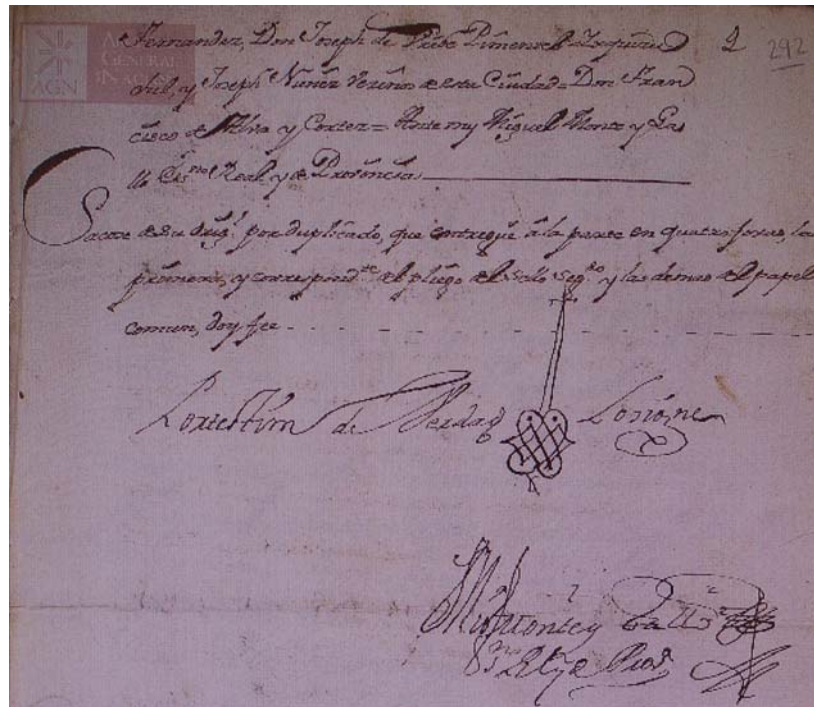 Fernandez, Don Joseph de Uribe Pimentel Izquier 2 292
do, y Joseph Nuñez Vecinos de esta Ciudad = Don Fran
cisco de Alva y Cortez = Ante my Miguel Monte y Ga
llo Es.no Real y de Provincia
Sacose de su Orig.l por duplicado, que entregue â la parte en quatro foxas, la
primera, y correspond.te del pliego del sello seg.do y las demas del papel
comun, doy fee
En testim de Verdad
Monte y Gallo
AGN